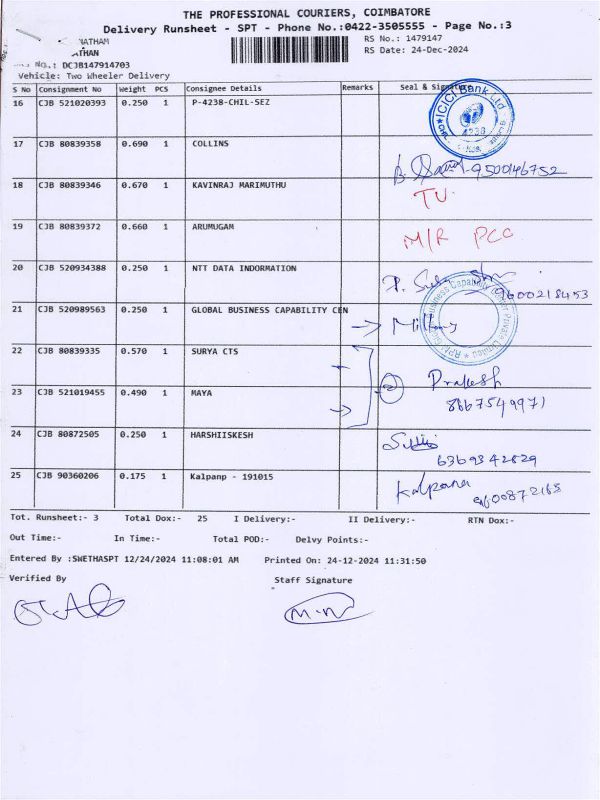 THE PROFESSIONAL COURIERS, COIMBATORE
Delivery Runsheet - SPT - Phone No.:0422-3505555 - Page No.:3
NATHAM RS No.: 1479147
THAN RS Date: 24-Dec-2024
No.: DCJB147914703
Vehicle: Two Wheeler Delivery
S No Consignment No Weight PCS Consignee Details Remarks Seal & Signature
16 CJB 521020393 0.250 1 P-4238-CHIL-SEZ ICICI Bank Ltd 4238
17 CJB 80839358 0.690 1 COLLINS 9500146752
18 CJB 80839346 0.670 1 KAVINRAJ MARIMUTHU TU.
19 CJB 80839372 0.660 1 ARUMUGAM M/R PCC
20 CJB 520934388 0.250 1 NTT DATA INDORMATION 9600218453
21 CJB 520989563 0.250 1 GLOBAL BUSINESS CAPABILITY CEN Business Capability Private Limited
22 CJB 80839335 0.570 1 SURYA CTS Prakesh
23 CJB 521019455 0.490 1 MAYA 8667549971
24 CJB 80872505 0.250 1 HARSHIISKESH 6369342829
25 CJB 90360206 0.175 1 Kalpanp - 191015 Kalpana
Tot. Runsheet:- 3 Total Dox:- 25 I Delivery:- II Delivery:- RTN Dox:-
Out Time:- In Time:- Total POD:- Delvy Points:-
Entered By :SWETHASPT 12/24/2024 11:08:01 AM Printed On: 24-12-2024 11:31:50
Verified By Staff Signature